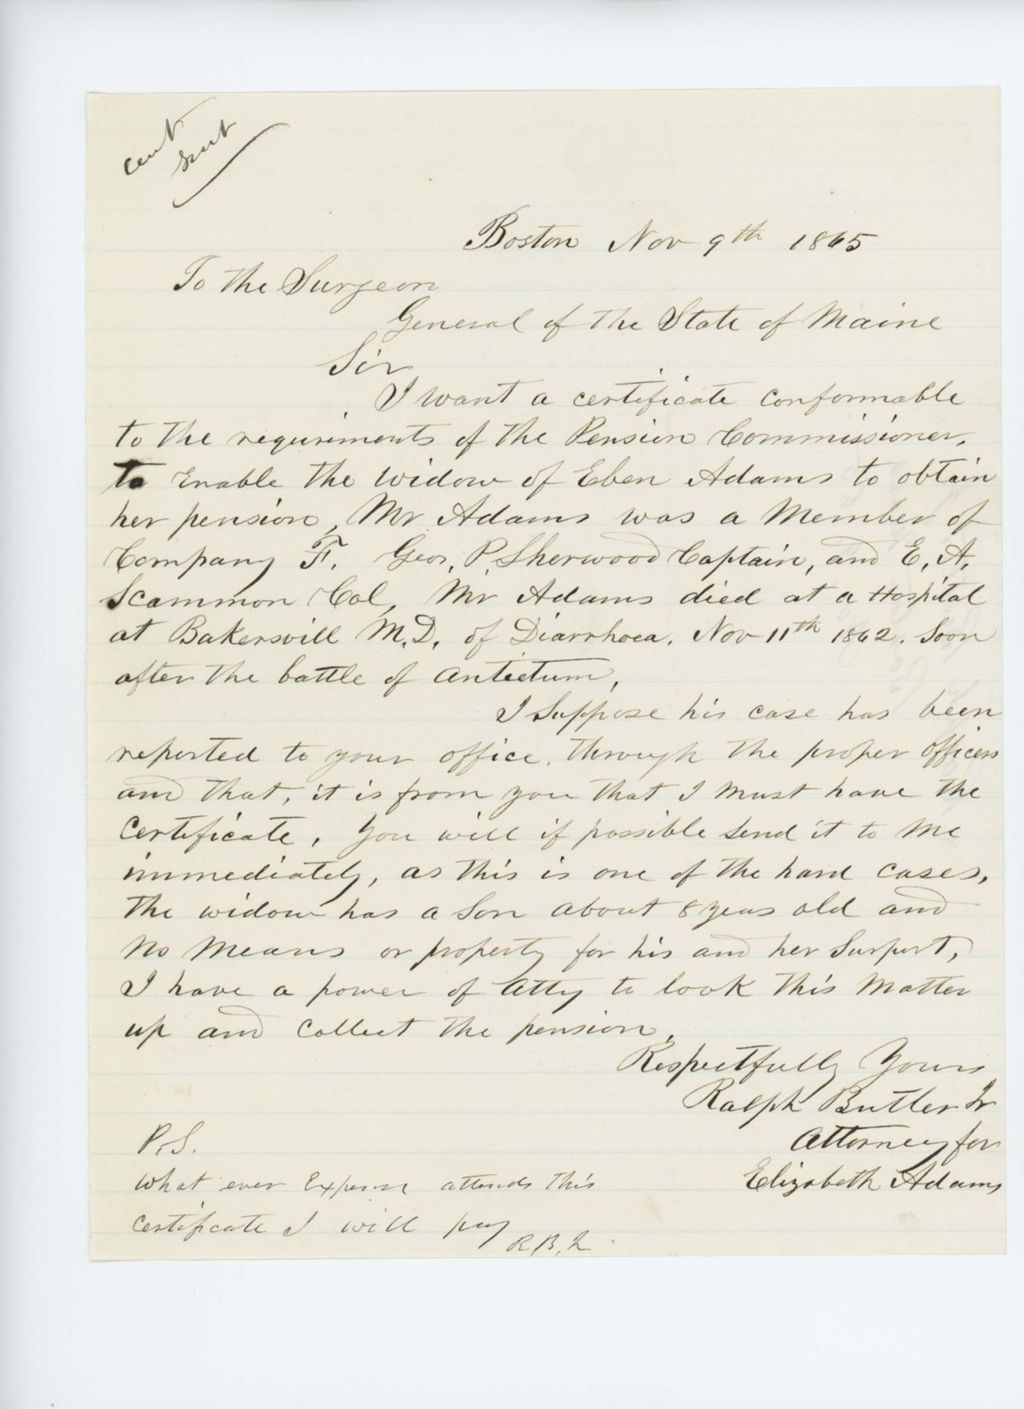 cert
sent
Boston Nov 9th 1865
To the Surgeon
General of the State of Maine
Sir
I want a certificate conformable
to the requiriments of the Pension Commissioner,
to Enable the widow of Eben Adams to obtain
her pension, Mr Adams was a Member of
Company F. Geo, P. Sherwood Captain, and E. A.
Scammon Col, Mr Adams died at a Hospital
at Bakersvill M.D. of Diarrhoea, Nov 11th 1862. Soon
after the battle of Antietum,
I Suppose his case has been
reported to your office, through the proper officers
and that, it is from you that I Must have the
Certificate, You will if possible send it to Me
immediately, as this is one of the hard cases,
The widow has a Son about 8 years old and
No Means or property for his and her Surport,
I have a power of Atty to look this Matter
up and Collect the pension,
Respectfully Yours
Ralph Butler Jr
Attorney for
Elizabeth Adams
P.S.
What ever Expense attends this
Certificate I will pay
R.B.J.